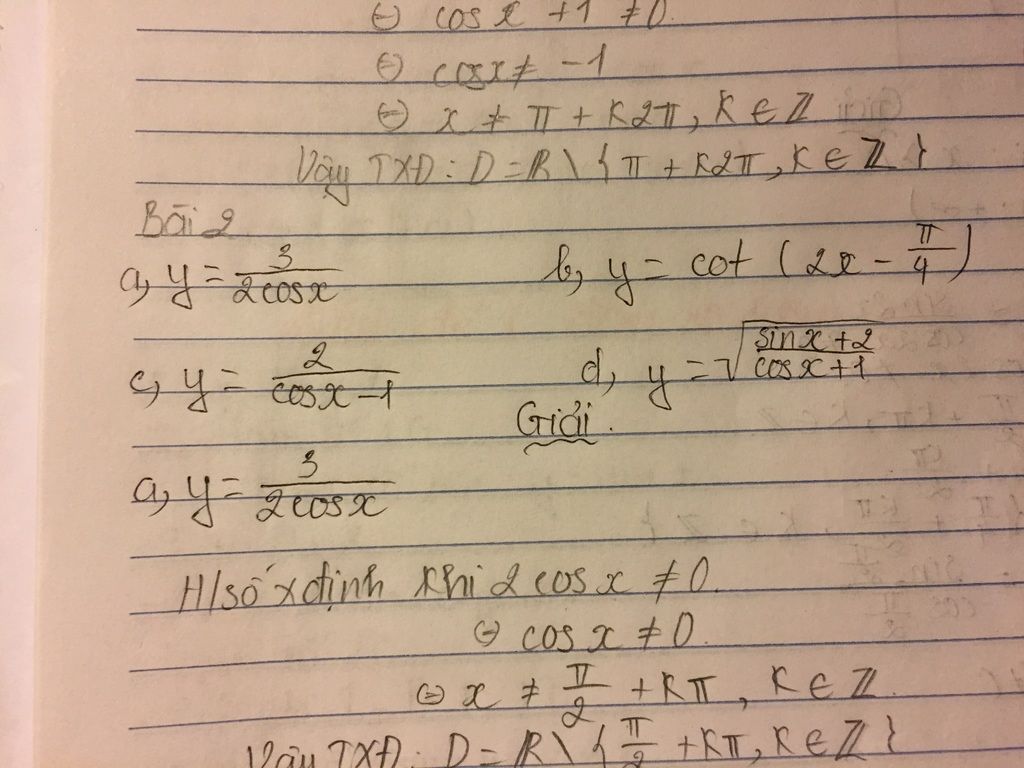 ⊖ cos x + 1 ≠ 0.
⊖ cos x ≠ -1
⊖ x ≠ π + k2π, k ∈ Z
Vậy TXĐ: D = R \ { π + k2π, k ∈ Z }
Bài 2
a, y = 3 / 2cos x b, y = cot (2x - π/4)
c, y = 2 / cos x - 1 d, y = √(sin x + 2 / cos x + 1)
Giải.
a, y = 3 / 2cos x
H/số xđịnh khi 2 cos x ≠ 0.
⊖ cos x ≠ 0.
⊖ x ≠ π/2 + kπ, k ∈ Z.
Vậy TXĐ: D = R \ { π/2 + kπ, k ∈ Z }